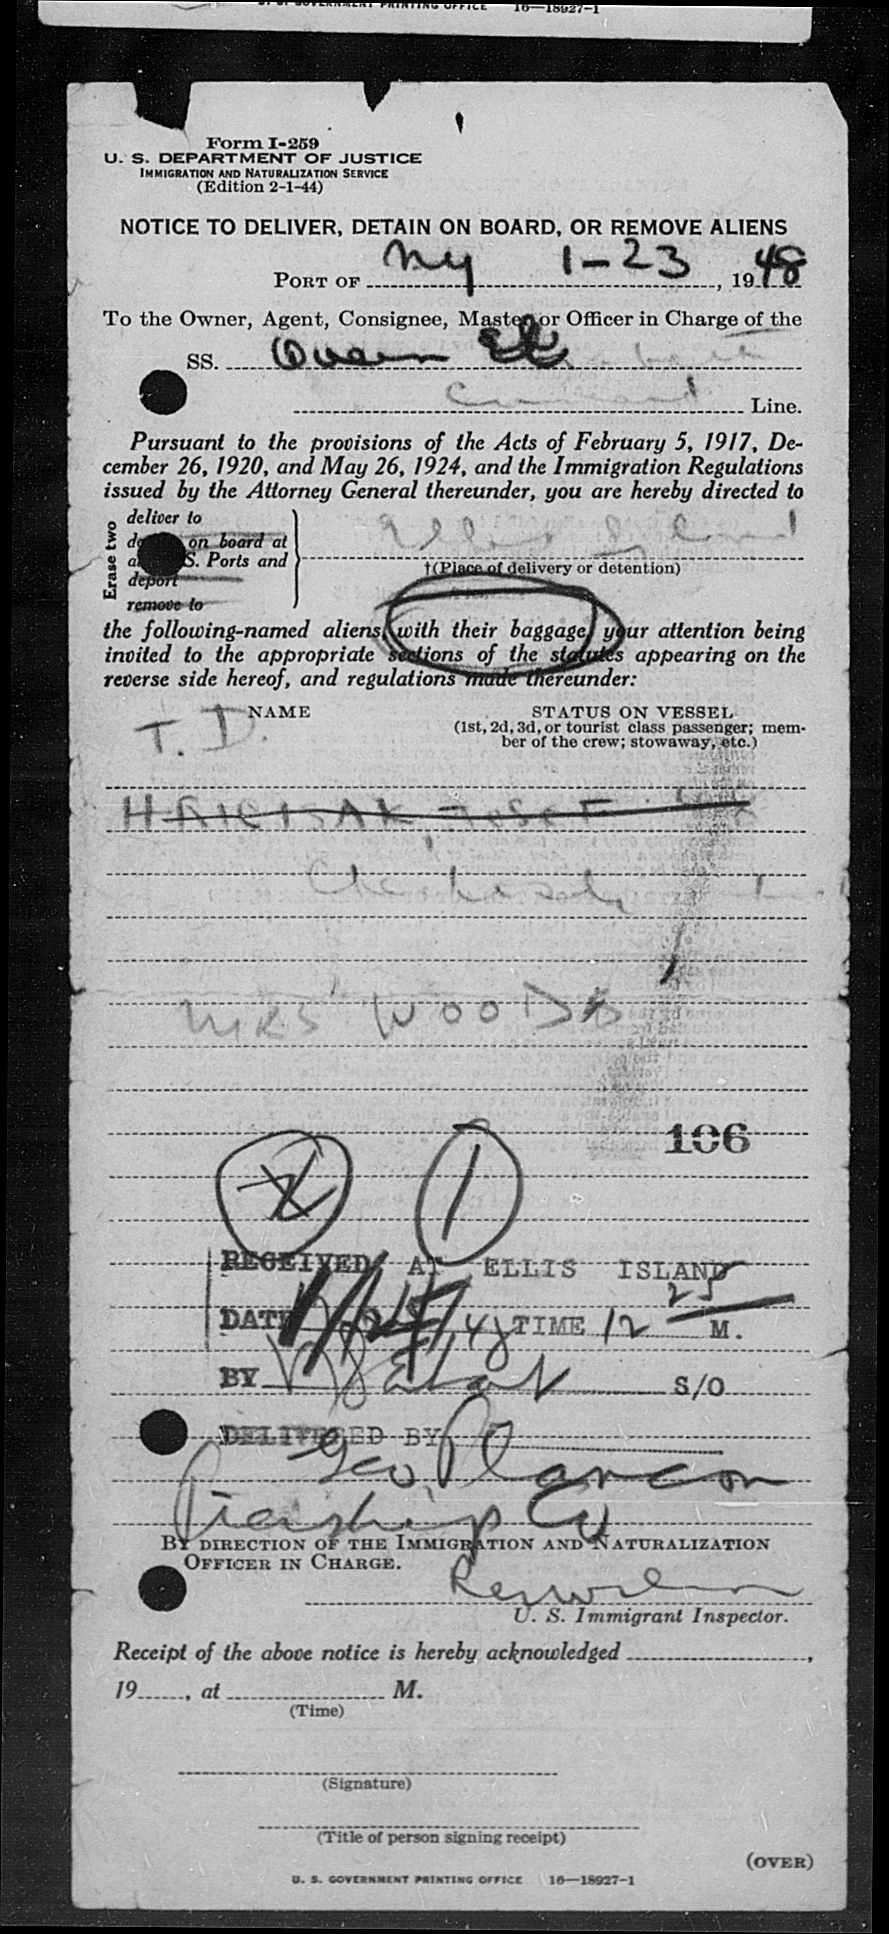 U. S. GOVERNMENT PRINTING OFFICE 16—18927-1
Form I-259
U. S. DEPARTMENT OF JUSTICE
IMMIGRATION AND NATURALIZATION SERVICE
(Edition 2-1-44)
NOTICE TO DELIVER, DETAIN ON BOARD, OR REMOVE ALIENS
PORT OF NY 1-23, 1948
To the Owner, Agent, Consignee, Master or Officer in Charge of the
SS. Queen Elizabeth
Cunard Line.
Pursuant to the provisions of the Acts of February 5, 1917, De-
cember 26, 1920, and May 26, 1924, and the Immigration Regulations
issued by the Attorney General thereunder, you are hereby directed to
Erase two
deliver to
on board at
S. Ports and
deport
remove to
Ellis Island
†(Place of delivery or detention)
the following-named aliens, with their baggage, your attention being
invited to the appropriate sections of the statutes appearing on the
reverse side hereof, and regulations made thereunder:
NAME
T. D.
STATUS ON VESSEL
(1st, 2d, 3d, or tourist class passenger; mem-
ber of the crew; stowaway, etc.)
JOSEF
MRS WOODS
106
1
RECEIVED AT ELLIS ISLAND
DATE 48 TIME 12 25 M.
BY S/O
DELIVERED BY
Geo.
BY DIRECTION OF THE IMMIGRATION AND NATURALIZATION
OFFICER IN CHARGE.
U. S. Immigrant Inspector.
Receipt of the above notice is hereby acknowledged ,
19 , at M.
(Time)
(Signature)
(Title of person signing receipt)
(OVER)
U. S. GOVERNMENT PRINTING OFFICE 16—18927-1